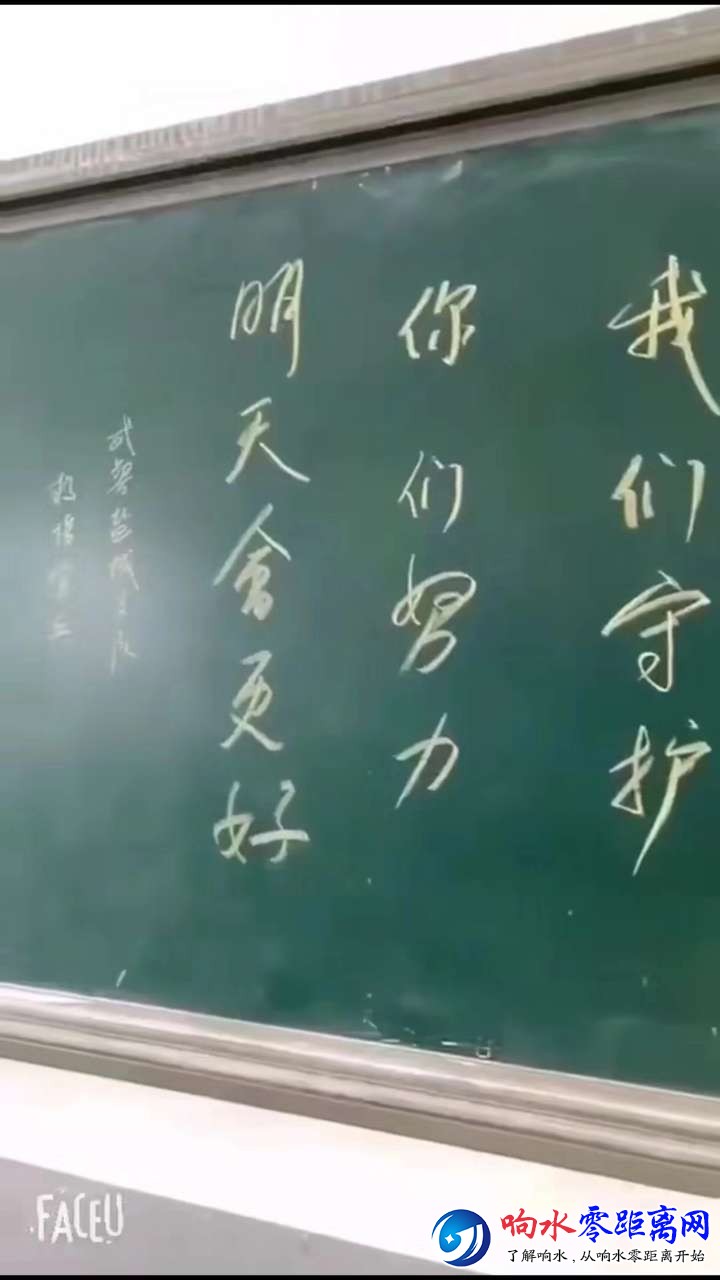 我们守护
你们努力
明天会更好
武警盐城支队
FACEU
响水零距离网
了解响水,从响水零距离开始